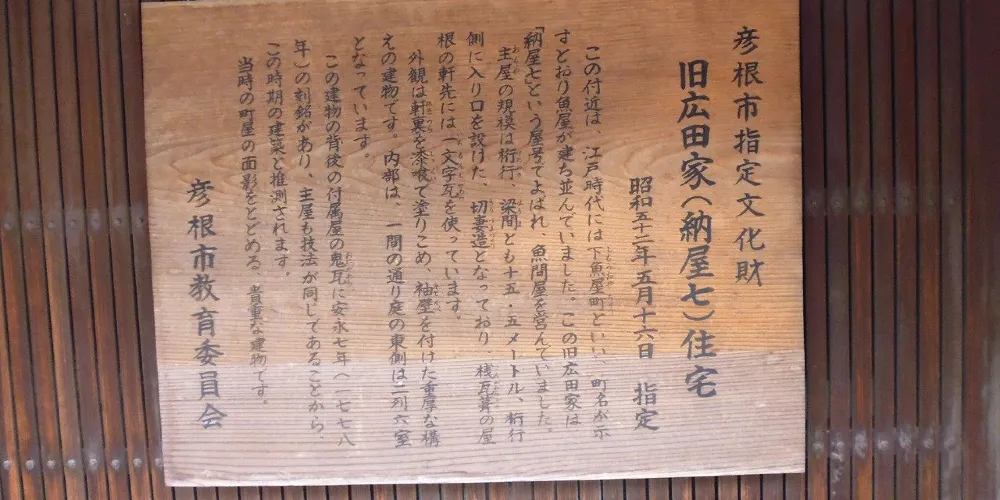 彦根市指定文化財
旧広田家(納屋七)住宅
昭和五十二年五月十六日 指定
この付近は、江戸時代には下魚屋町といい、町名が示
すとおり魚屋が建ち並んでいました。この旧広田家は
「納屋七」という屋号でよばれ、魚問屋を営んでいました。
主屋の規模は桁行、梁間とも十五・五メートル、桁行
側に入り口を設けた、切妻造となっており、桟瓦葺の屋
根の軒先には一文字瓦を使っています。
外観は軒裏を漆喰で塗りこめ、袖壁を付けた重厚な構
えの建物です。内部は、一間の通り庭の東側は二列六室
となっています。
この建物の背後の付属屋の鬼瓦に安永七年(一七七八
年)の刻銘があり、主屋も技法が同じであることから、
この時期の建築と推測されます。
当時の町屋の面影をとどめる、貴重な建物です。
彦根市教育委員会